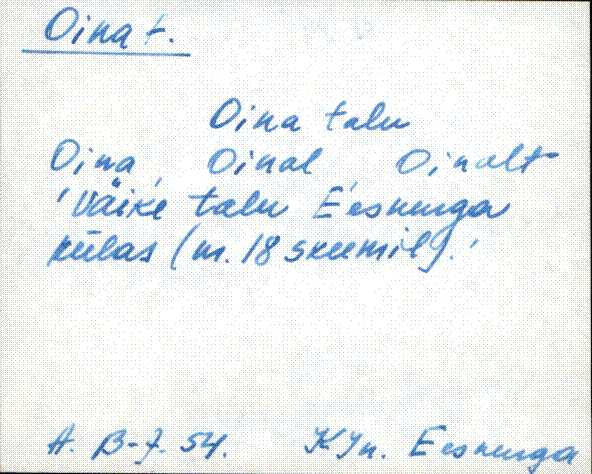 Oina t.
Oina talu
Oina, Oinal Oinalt
'Väike talu Eesnurga
külas (nr. 18 skeemil).'
A. B-7. 54. KJn. Eesnurga